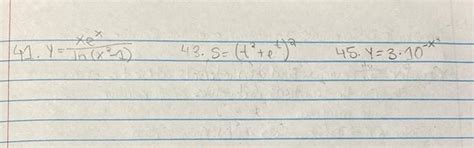 41. y = xeˣ / ln(x²-1) 43. S = (t² + eᵗ)² 45. y = 3·10